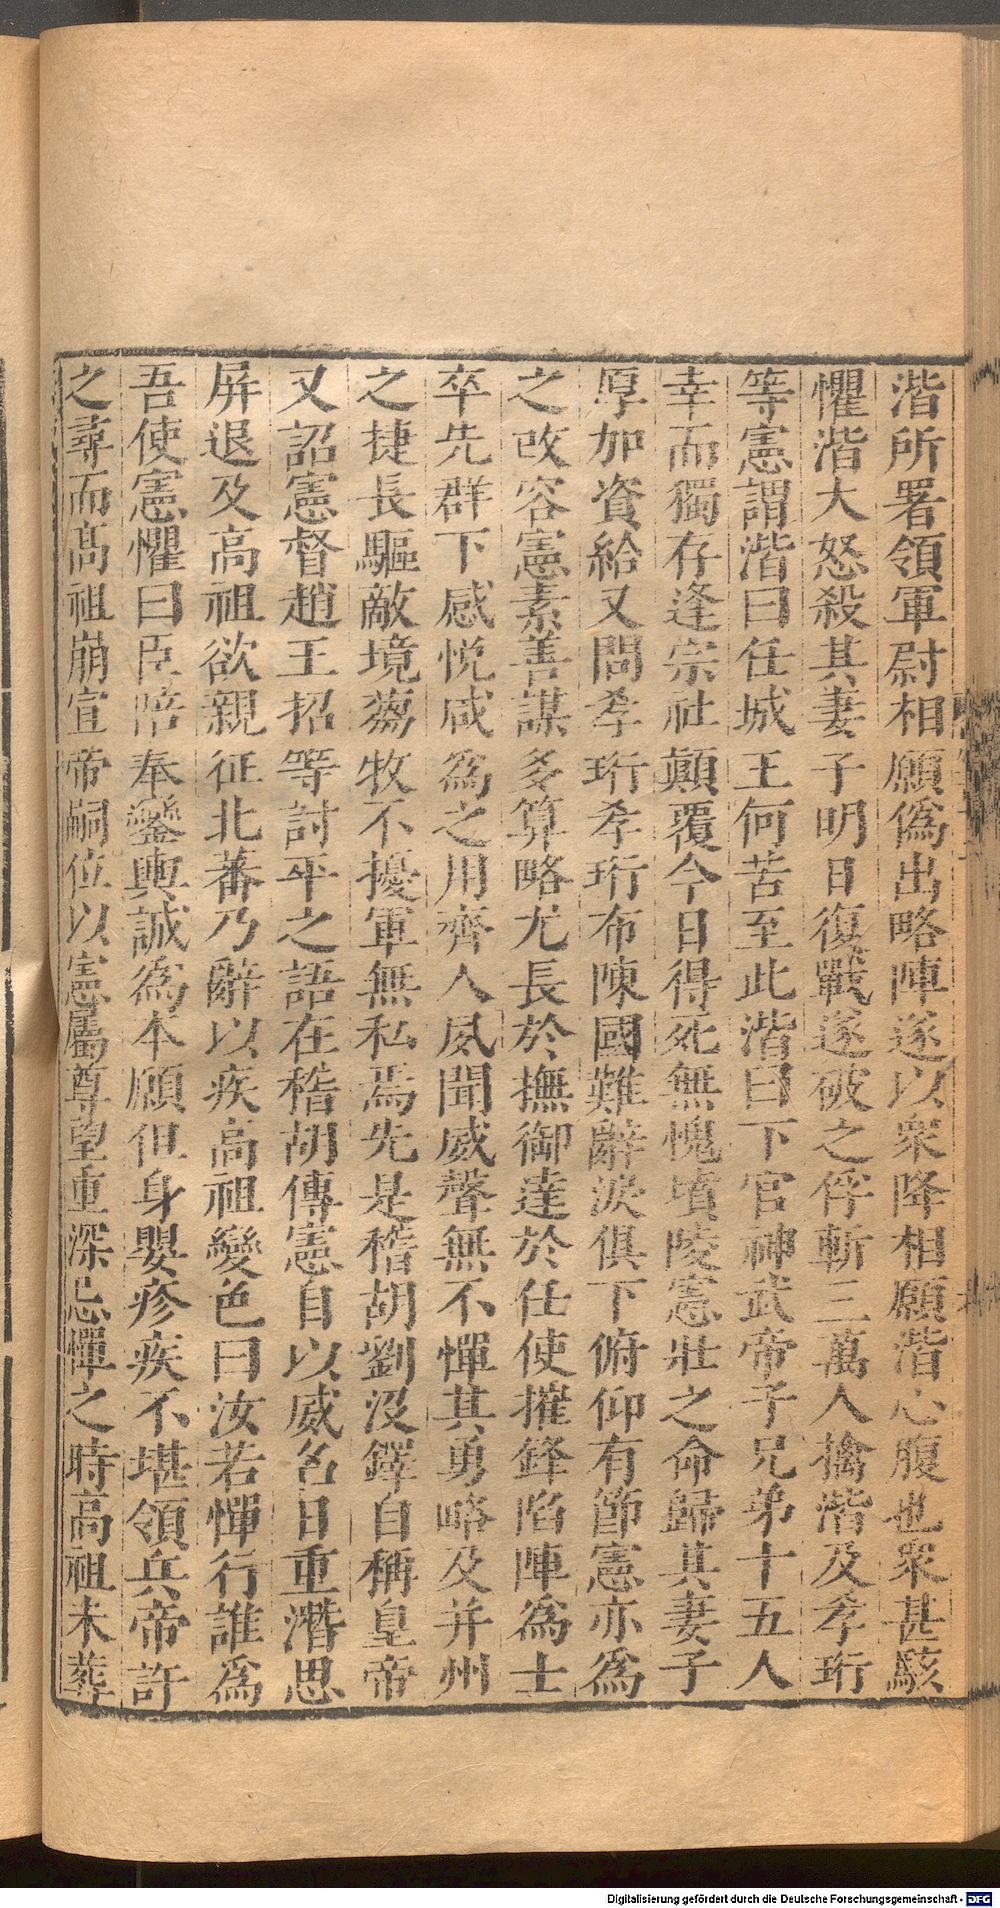 湝所署領軍尉相願僞出略陣遂以衆降相願湝心腹也衆甚駭
懼湝大怒殺其妻子明日復戰遂破之俘斬三萬人擒湝及孝珩
等憲謂湝曰任城王何苦至此湝曰下官神武帝子兄弟十五人
幸而獨存逢宗社顛覆今日得死無愧墳陵憲壯之命歸其妻子
厚加資給又問孝珩孝珩布陳國難辭淚俱下俯仰有節憲亦爲
之改容憲素善謀多算略尤長於撫御達於任使摧鋒陷陣爲士
卒先群下感悅咸爲之用齊人夙聞威聲無不憚其勇略及并州
之捷長驅敵境芻牧不擾軍無私焉先是稽胡劉沒鐸自稱皇帝
又詔憲督趙王招等討平之語在稽胡傳憲自以威名日重潛思
屏退及高祖欲親征北蕃乃辭以疾高祖變色曰汝若憚行誰爲
吾使憲懼曰臣陪奉鑾輿誠爲本願但身嬰疹疾不堪領兵帝許
之尋而高祖崩宣帝嗣位以憲屬尊望重深忌憚之時高祖未葬
Digitalisierung gefördert durch die Deutsche Forschungsgemeinschaft - DFG